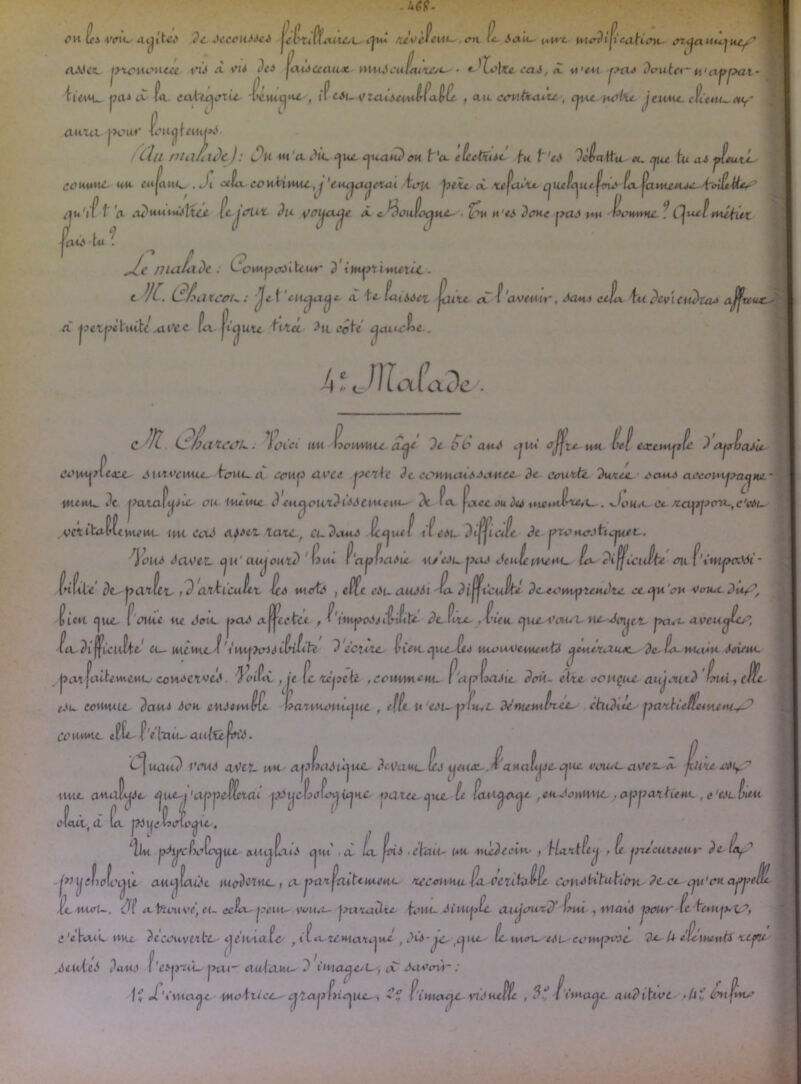 - 468 -
on les voit agités de secousses fébrillaires qui révèlent, on le sait, une modification organique
assez prononcée vis à vis des faisceaux musculaires. Notre cas, à n'en pas douter n'appar-
tient pas à la catégorie bénigne, il est vraisemblable, au contraire, que notre jeune client en
aura pour longtemps.
(Au malade): On m'a dit que quand on t'a électrisé tu t'es débattu et que tu as pleuré
comme un enfant. Si cela continue, j'engagerai ton père à refaire quelquefois la fameuse toilette
qu'il t'a administrée le jour du voyage à Boulogne. Tu n'es donc pas un homme? Quel métier
fais-tu?
Le malade: Compositeur d'imprimerie.
M. Charcot: Je t'engage à te laisser faire à l'avenir, sans cela tu deviendras affreux
à perpétuité avec la figure tirée du côté gauche.
4e Malade.
M. Charcot: Voici un homme âgé de 56 ans qui offre un bel exemple d'aphasie
complexe survenue tout à coup avec perte de connaissance de courte durée sans accompagne-
ment de paralysie ou même d'engourdissement de la face ou des membres. Sous ce rapport, c'est
véritablement un cas assez rare, et dans lequel il est difficile de pronostiquer.
Vous savez qu'aujourd'hui l'aphasie n'est pas seulement la difficulté ou l'impossi-
bilité de parler, d'articuler les mots, elle est aussi la difficulté de comprendre ce qu'on vous dit,
bien que l'ouïe ne soit pas affectée, l'impossibilité de lire, bien que vous ne soyez pas aveugle,
la difficulté et même l'impossibilité d'écrire bien que les mouvements généraux de la main soient
parfaitement conservés. Voilà, je le répète, comment l'aphasie doit être conçue aujourd'hui, elle
est connue dans son ensemble harmonique, elle n'est plus démembrée étudiée partiellement
comme elle l'était autrefois.
Quand vous avez un aphasique devant les yeux, l'analyse que vous avez à faire est
une analyse que j'appellerai psychologique parce que le langage, en somme, appartient, c'est bien
clair, à la psychologie.
Un psychologue anglais qui, à la fois était un médecin, Hartley, le précurseur de la
psychologie anglaise moderne, a parfaitement reconnu la véritable constitution de ce qu'on appelle
le mot. Il a trouvé, et cela peut vous paraître tout simple aujourd'hui, mais pour le temps,
c'était une découverte géniale, il a remarqué, dis-je, que le mot est composé de 4 éléments repré-
sentés dans l'esprit par autant d'images, à savoir:
1º L'image motrice graphique, 2º l'image visuelle, 3º l'image auditive, 4º enfin